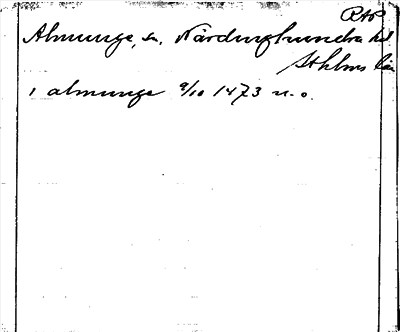 RAP
Almunge, sn, Närdinghundra hd
Sthlms län
i almunge 9/10 1473 u. o.